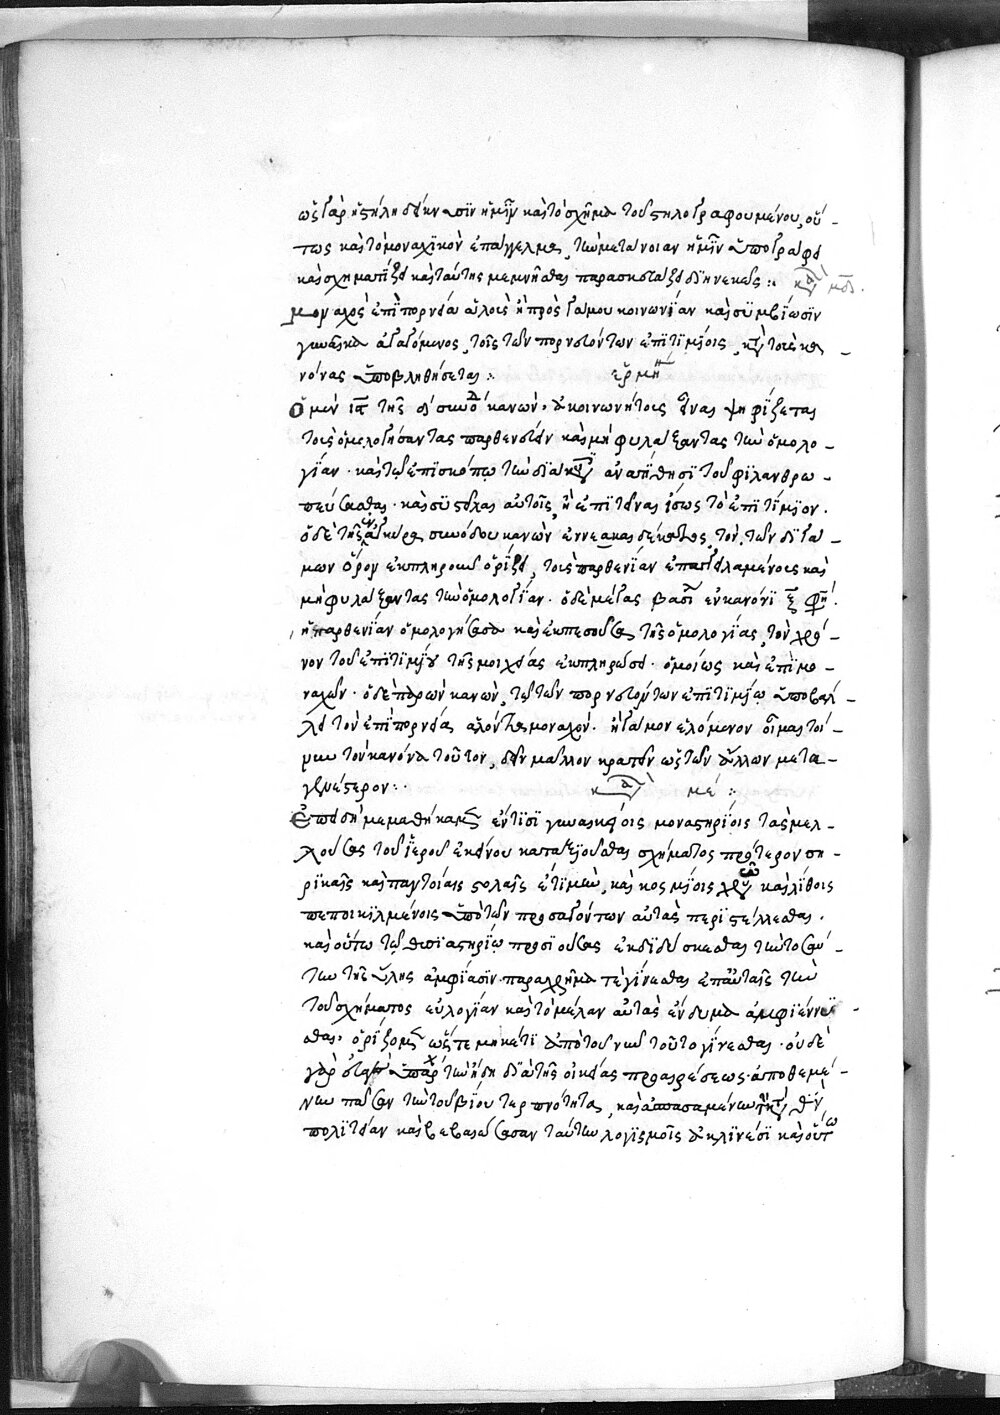 ὡς γὰρ ἡ στήλη δείκνυσιν ἡμῖν καὶ τὸ σχῆμα τοῦ στηλογραφουμένου, οὕ-
τως καὶ τὸ μοναχικὸν ἐπάγγελμα, τὴν μετάνοιαν ἡμῖν ὑπογράφει
καὶ σχηματίζει καὶ ταύτης μεμνῆσθαι παρασκευάζει διηνεκῶς : κα μδ.
μοναχὸς ἐπὶ πορνείᾳ ἁλοὺς ἢ πρὸς γάμου κοινωνίαν καὶ συμβίωσιν
γυναῖκα ἀγαγόμενος, τοῖς τῶν πορνευόντων ἐπιτιμίοις, κατὰ τοὺς κα-
νόνας ὑποβληθήσεται : ἑρμη
Ὁ μὲν ις τῆς δ συνοδ κανών, ἀκοινωνήτους εἶναι ψηφίζεται
τοὺς ὁμολογήσαντας παρθενεύειν καὶ μὴ φυλάξαντας τὴν ὁμολο-
γίαν · καὶ τῷ ἐπισκόπῳ τὴν ἀνατίθησι τοῦ φιλανθρω-
πεύσασθαι · καὶ συστεῖλαι αὐτοῖς, ἢ ἐπιτεῖναι ἴσως τὸ ἐπιτίμιον.
ὁ δὲ τῆς ἐν ἀγκύρᾳ συνόδου κανὼν ἐννεακαιδέκατος, τὸν τῶν διγά-
μων ὅρον ἐκπληροῦν ὁρίζει, τοὺς παρθενίαν ἐπαγγειλαμένους καὶ
μὴ φυλάξαντας τὴν ὁμολογίαν · ὁ δὲ μέγας βασι ἐν κανόνι ξ φη.
ἡ παρθενίαν ὁμολογήσασα καὶ ἐκπεσοῦσα τῆς ὁμολογίας, τὸν χρό-
νον τοῦ ἐπιτιμίου τῆς μοιχείας ἐκπληρώσει · ὁμοίως καὶ ἐπὶ μο-
ναχῶν · ὁ δὲ παρὼν κανών, τῷ τῶν πορνευόντων ἐπιτιμίῳ ὑποβάλ-
λει τὸν ἐπὶ πορνείᾳ ἁλόντα μοναχόν · ἢ γάμον ἑλόμενον οἶμαι τοί-
νυν τὸν κανόνα τοῦτον, δεῖν μᾶλλον κρατεῖν ὡς τῶν ἄλλων μετα-
γενέστερον : κα με :
Ἐπειδὴ μεμαθήκαμεν ἔν τισι γυναικείοις μοναστηρίοις τὰς μελ-
λούσας τοῦ ἱεροῦ ἐκείνου καταξιοῦσθαι σχήματος πρότερον ση-
ρικαῖς καὶ παντοίαις στολαῖς ἔτι μὴν, καὶ κοσμίοις χρυσῷ καὶ λίθοις
πεποικιλμένοις ὑπὸ τῶν προσαγόντων αὐτὰς περιστέλλεσθαι,
καὶ οὕτω τῷ θυσιαστηρίῳ προσιούσας ἐκδιδύσκεσθαι τὴν τοσαύ-
την τῆς ὕλης ἀμφίασιν παραχρῆμά τε γίνεσθαι ἐπ' αὐταῖς τὴν
τοῦ σχήματος εὐλογίαν καὶ τὸ μέλαν αὐτὰς ἔνδυμα ἀμφιέννυ-
σθαι, ὁρίζομεν ὥστε μηκέτι ἀπὸ τοῦ νῦν τοῦτο γίνεσθαι · οὐδὲ
γὰρ εὐαγὲς ὑπάρχ τὴν ἤδη διὰ τῆς οἰκείας προαιρέσεως ἀποθεμέ-
νην πᾶσαν τὴν τοῦ βίου τερπνότητα, καὶ ἀσπασαμένην τὴν κατὰ θν
πολιτείαν καὶ βεβαιώσασαν ταύτην λογισμοῖς ἀκλινέσι καὶ οὕτω